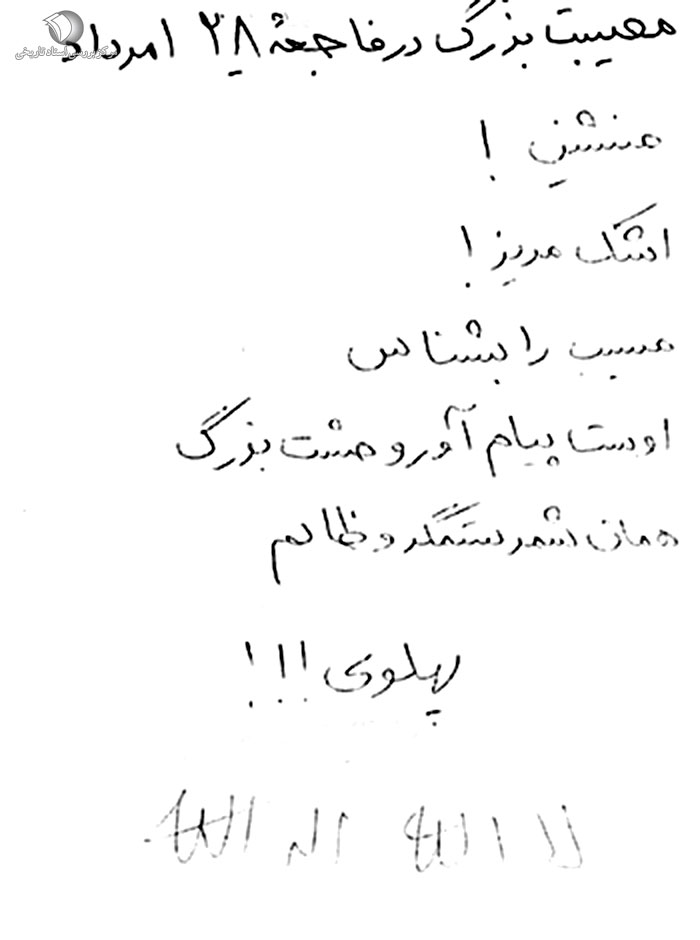 مرکز بررسی اسناد تاریخی
مصیبت بزرگ در فاجعهٔ ۲۸ امرداد
منشین !
اشک مریز !
مسبب را بشناس
اوست پیام آور وحشت بزرگ
همان شمر ستمگر و ظالم
پهلوی !!!
لا الله اله الله